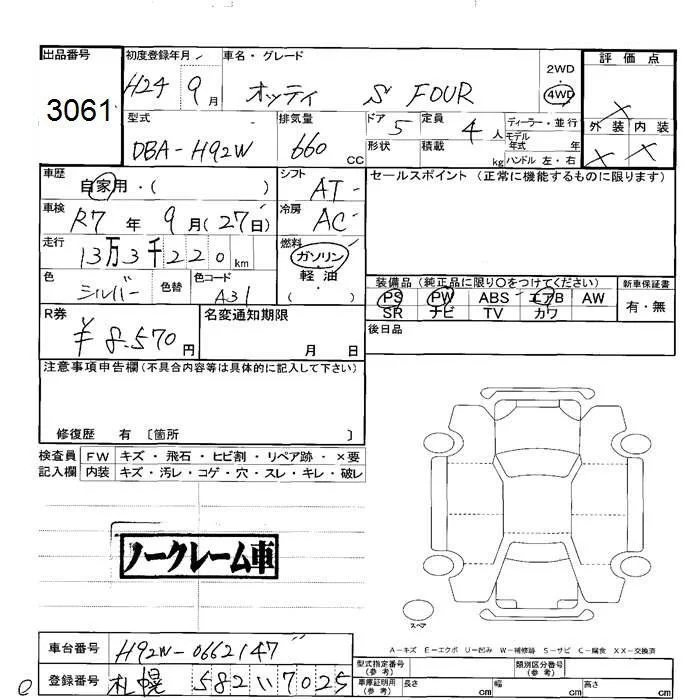 出品番号 初度登録年月 車名・グレード 評価点
3061 H24 9月 オッティ S FOUR 2WD 4WD X
型式 排気量 ドア 5 定員 4人 ディーラー・並行 外装 内装
DBA-H92W 660 cc 形状 積載 kg モデル年式 年 ハンドル 左・右 X X
車歴 自家用・( ) シフト AT セールスポイント (正常に機能するものに限ります)
車検 R7年 9月(27日) 冷房 AC
走行 13万3千220km 燃料 ガソリン 軽油 ( )
色 シルバー 色替 色コード A31
装備品 (純正品に限り○をつけてください) 新車保証書
PS PW ABS エアB AW 有・無
SR ナビ TV カワ
R券 ¥8,570円 名変通知期限 月 日 後日品
注意事項申告欄(不具合内容等は具体的に記入して下さい)
修復歴 有 〔箇所 〕
検査員 FW キズ・飛石・ヒビ割・リペア跡・×要
記入欄 内装 キズ・汚レ・コゲ・穴・スレ・キレ・破レ
ノークレーム車
スペア
A-キズ E-エクボ U-凹み W-補修跡 S-サビ C-腐食 XX-交換済
車台番号 H92W-0662147
型式指定番号(参考) 類別区分番号(参考)
登録番号 札幌 582 い 7025
車庫証明用(参考) 長さ cm 幅 cm 高さ cm